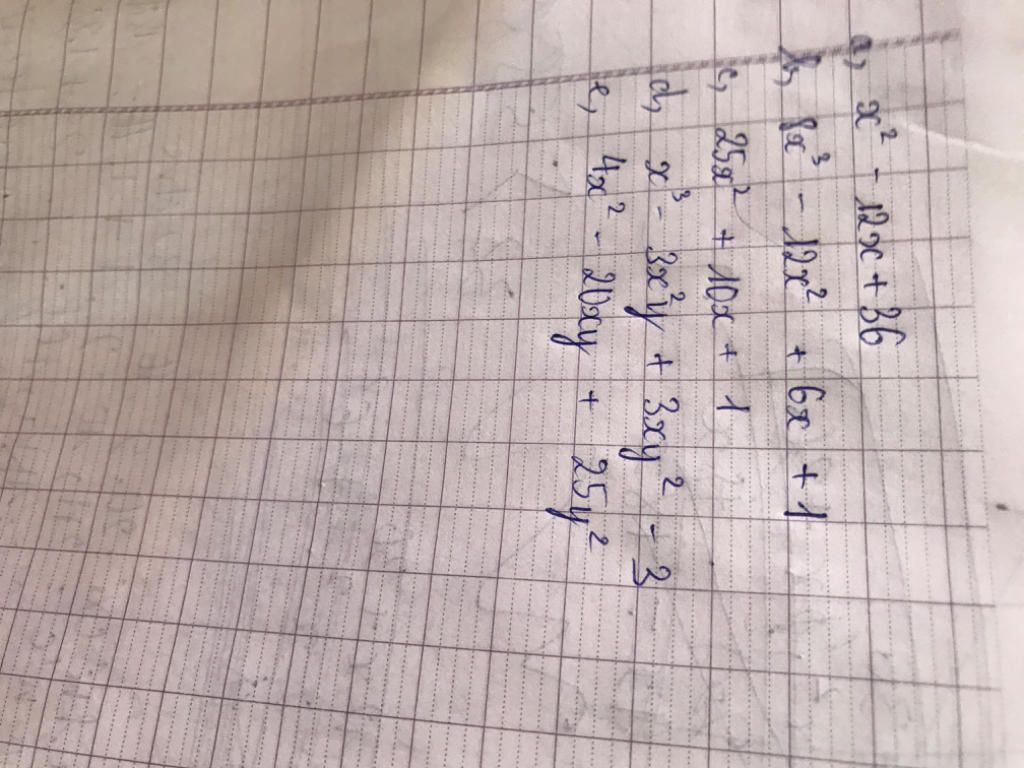 a, x² - 12x + 36
b, 8x³ - 12x² + 6x + 1
c, 25x² + 10x + 1
d, x³ - 3x²y + 3xy² - 3
e, 4x² - 20xy + 25y²